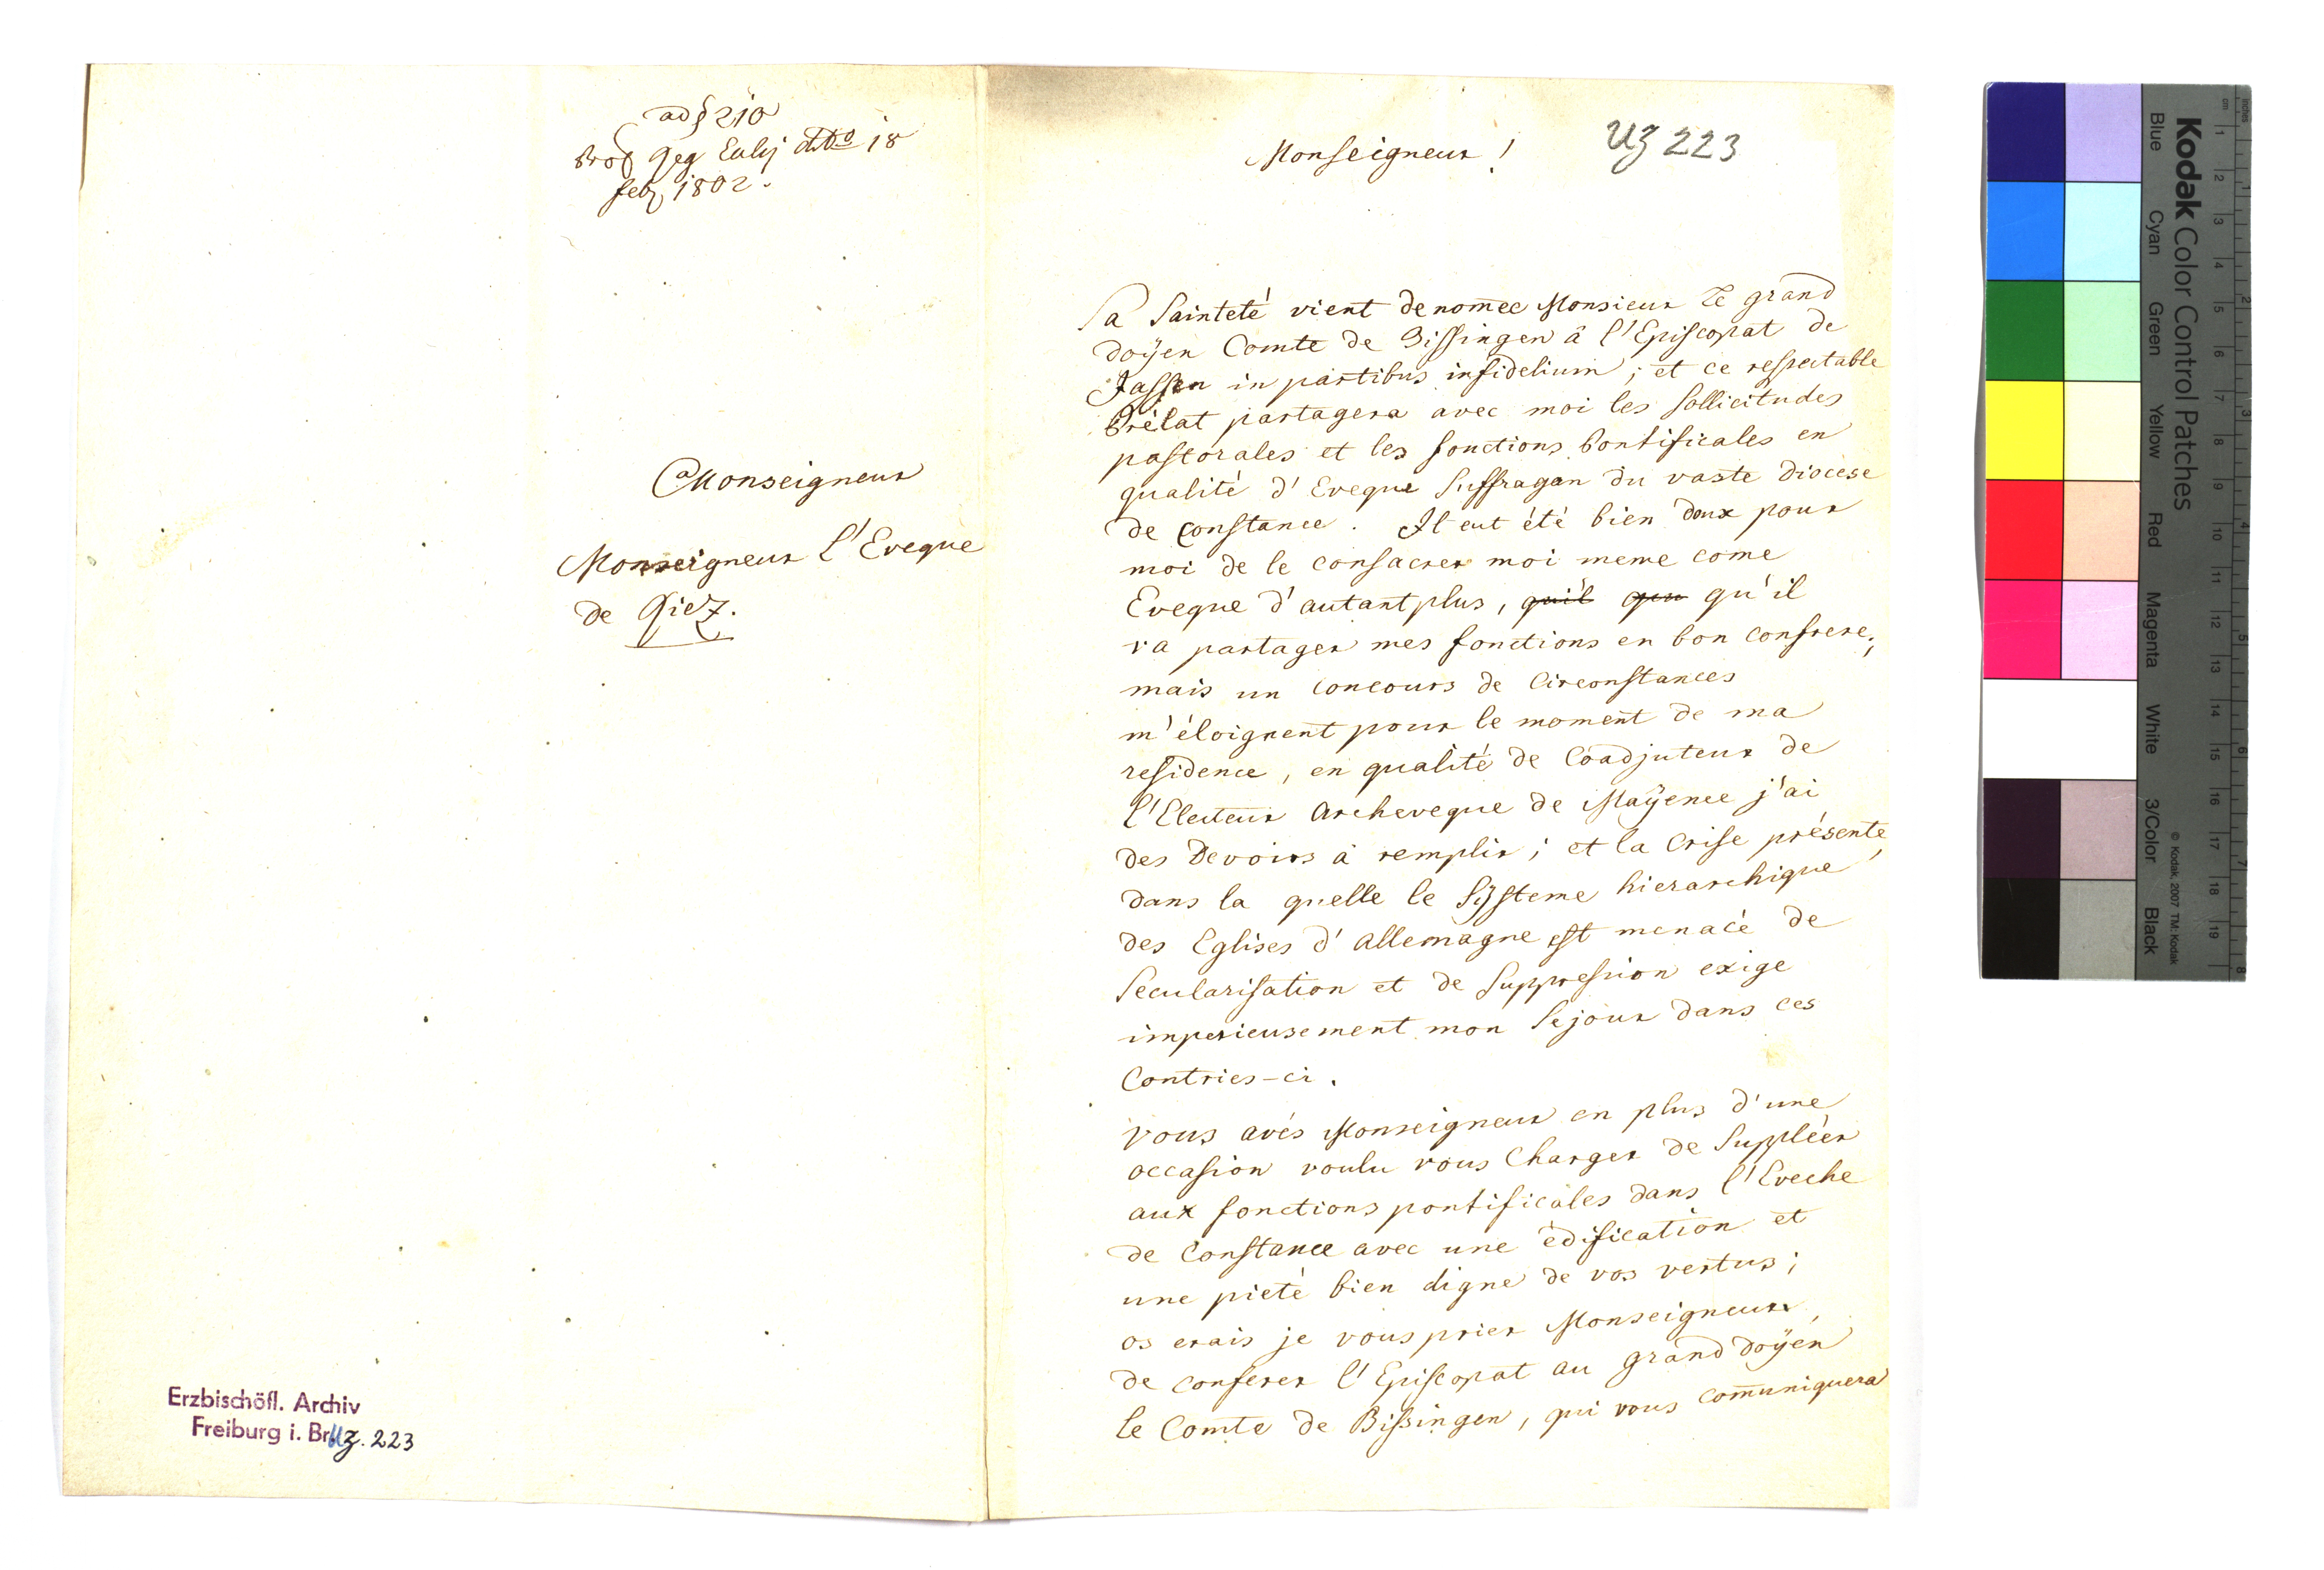 ad § 210
Prot Geg Eccly dtto 18
feb 1802.
Monseigneur
Monseigneur l'Eveque
de Giez.
Erzbischöfl. Archiv
Freiburg i. Br. Uz. 223
Monseigneur !
Uz 223
Sa Sainteté vient de nom̄ee Monsieur Le grand
doÿen Comte de Bissingen â l'Episcopat de
Jassen in partibus infidelium ; et ce respectable
Prélat partagera avec moi les sollicitudes
pastorales et les fonctions Pontificales en
qualité d' Eveque Suffragan du vaste Diocèse
de Constance . Il eut été bien doux pour
moi de le consacrer moi meme come
Eveque d'autant plus, qu'il que qu'il
va partager mes fonctions en bon confrere;
mais un concours de Circonstances
m'éloignent pour le moment de ma
residence, en qualité de Coadjuteur de
l'Electeur Archeveque de Maÿence j'ai
des Devoirs à remplir ; et la Crise présente,
dans la quelle le Sÿsteme hierarchique
des Eglises d' Allemagne est menacé de
Secularisation et de Suppression exige
imperieusement mon Sejour dans ces
Contries-ci .
vous avés Monseigneur en plus d'une
occasion voulu vous Charger de Suppléer
aux fonctions pontificales dans l'Eveche
de Constance avec une édification et
une pieté bien digne de vos vertus ;
os erais je vous prier Monseigneur,
de conferer l'Episcopat au grand doÿen
le Comte de Bissingen, qui vous com̄uniquera
Kodak Color Control Patches
Blue Cyan Green Yellow Red Magenta White 3/Color Black
© Kodak, 2007 TM: Kodak
inches
cm
1 2 3 4 5 6 7 8 9 10 11 12 13 14 15 16 17 18 19
1 2 3 4 5 6 7 8